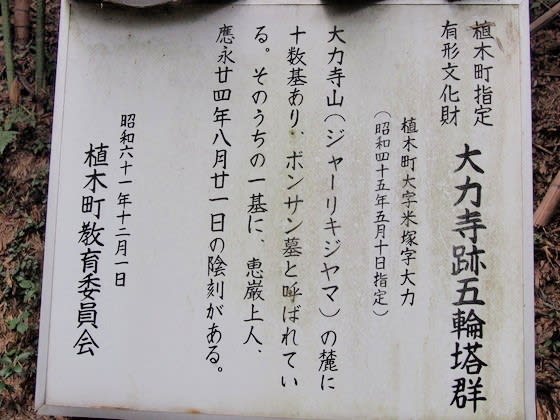 植木町指定
有形文化財
大力寺跡五輪塔群
植木町大字米塚字大力
（昭和四十五年五月十日指定）
大力寺山（ジャーリキジヤマ）の麓に
十数基あり、ボンサン墓と呼ばれてい
る。そのうちの一基に、恵厳上人、
應永廿四年八月廿一日の陰刻がある。
昭和六十一年十二月一日
植木町教育委員会